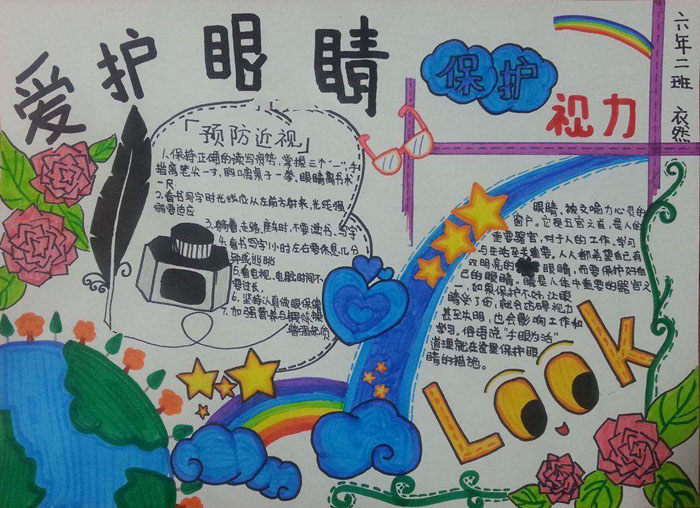 爱护眼睛
保护
视力
六年二班 衣然
「预防近视」
1.保持正确的读写姿势,掌握三个"一",手
指离笔尖一寸,胸离桌子一拳,眼睛离书本
一尺
2.看书写字时光线应从左前方射来,光线强
弱要适应
3.躺着,走路,乘车时,不要读书、写字
4.看书写字1小时左右要休息几分
钟或眺望
5.看电视、电脑时间不
要过长,
6.坚持认真做眼保健
7.加强营养与
眼睛,被交喻为心灵的
窗户。它是五官之首,是人的
重要器官,对于人的工作,学习
与生活至关重要。人人都希望自己有
双明亮的 眼睛,而要保护好自
己的眼睛,睛是人体中重要的器官之
一,如果保护不好,让眼
睛受了伤,就会妨碍视力
甚至失明,也会影响工作和
学习,俗语说"手眼为活"
道理就在这里保护眼
睛的措施。
Look